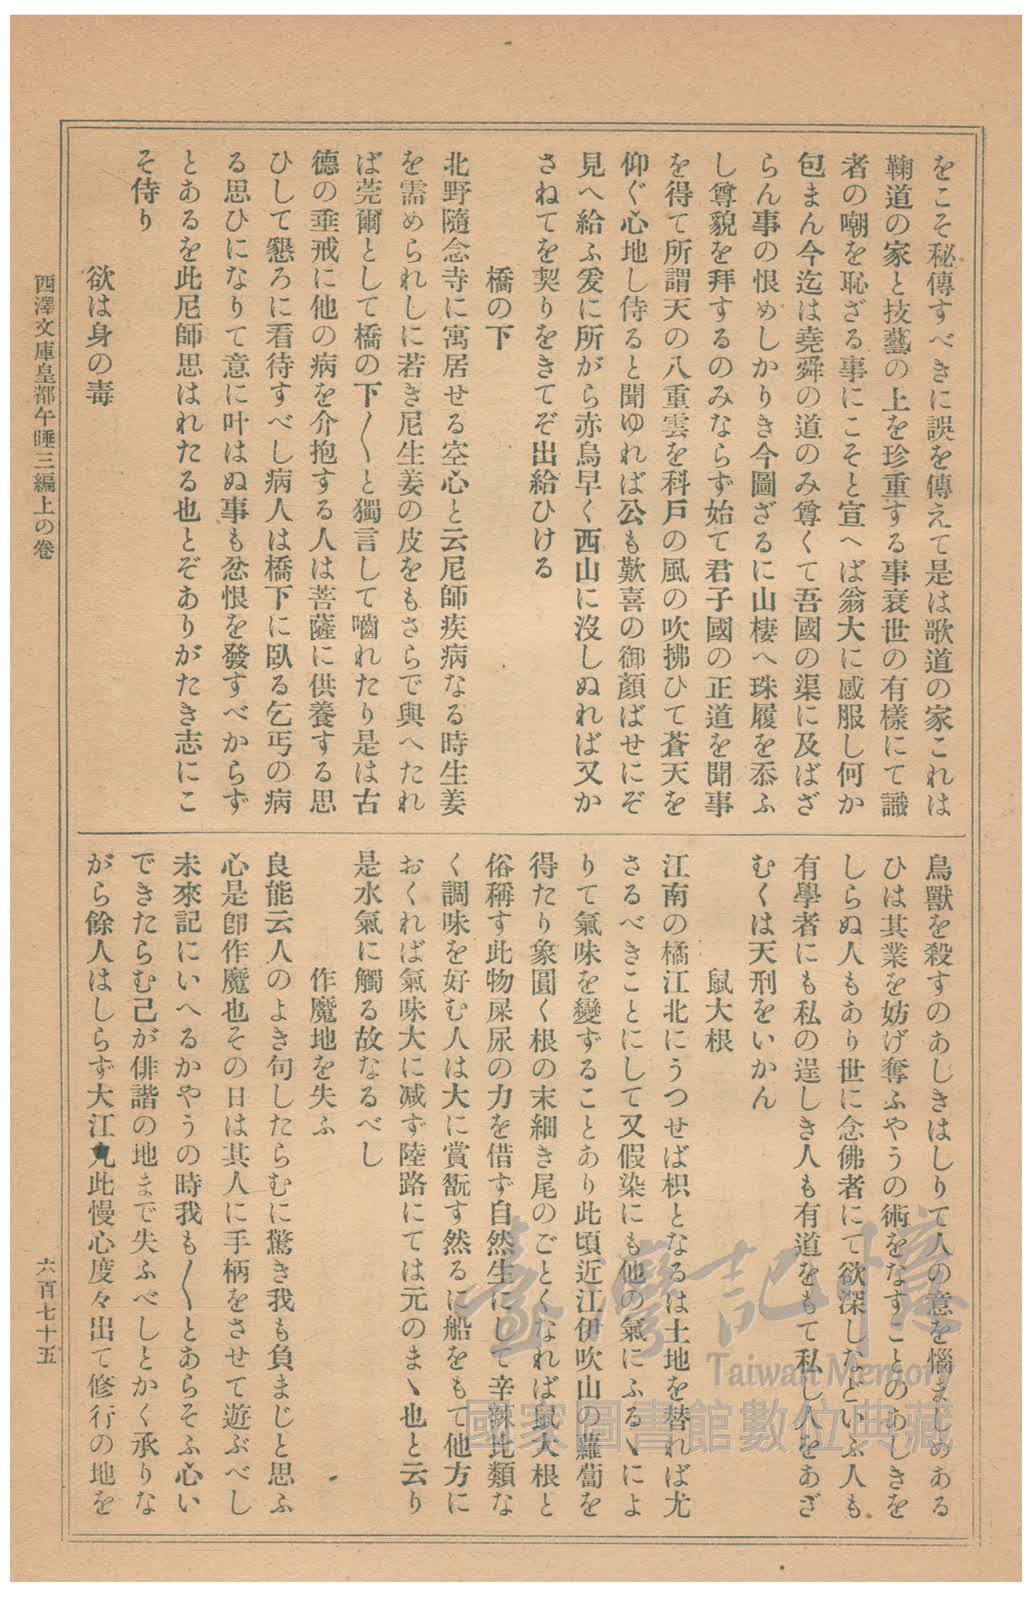 をこそ秘傳すべきに誤を傳えて是は歌道の家これは
鞠道の家と技藝の上を珍重する事衰世の有樣にて識
者の嘲を恥ざる事にこそと宣へば翁大に感服し何か
包まん今迄は堯舜の道のみ尊くて吾國の渠に及ばざ
らん事の恨めしかりき今圖ざるに山棲へ珠履を忝ふ
し尊貌を拜するのみならず始て君子國の正道を聞事
を得て所謂天の八重雲を科戸の風の吹拂ひて蒼天を
仰ぐ心地し侍ると聞ゆれば公も歎喜の御顏ばせにぞ
見へ給ふ爰に所がら赤烏早く西山に沒しぬれば又か
さねてを契りをきてぞ出給ひける
橋の下
北野隨念寺に寓居せる空心と云尼師疾病なる時生姜
を需められしに若き尼生姜の皮をもさらで與へたれ
ば莞爾として橋の下〳〵と獨言して嚙れたり是は古
德の垂戒に他の病を介抱する人は菩薩に供養する思
ひして懇ろに看待すべし病人は橋下に臥る乞丐の病
る思ひになりて意に叶はぬ事も忿恨を發すべからず
とあるを此尼師思はれたる也とぞありがたき志にこ
そ侍り
欲は身の毒
鳥獸を殺すのあしきはしりて人の意を惱ましめある
ひは其業を妨げ奪ふやうの術をなすことのあしきを
しらぬ人もあり世に念佛者にて欲深しなどいふ人も
有學者にも私の逞しき人も有道をもて私し人をあざ
むくは天刑をいかん
鼠大根
江南の橘江北にうつせば枳となるは土地を替れば尤
さるべきことにして又假染にも他の氣にふるヽによ
りて氣味を變ずることあり此頃近江伊吹山の蘿蔔を
得たり象圓く根の末細き尾のごとくなれば鼠大根と
俗稱す此物屎尿の力を借ず自然生にして辛辣比類な
く調味を好む人は大に賞翫す然るに船をもて他方に
おくれば氣味大に减ず陸路にては元のまヽ也と云り
是水氣に觸る故なるべし
作魔地を失ふ
良能云人のよき句したらむに驚き我も負まじと思ふ
心是卽作魔也その日は其人に手柄をさせて遊ぶべし
未來記にいへるかやうの時我も〳〵とあらそふ心い
できたらむ己が俳諧の地まで失ふべしとかく承りな
がら餘人はしらず大江丸此慢心度々出て修行の地を
西澤文庫皇都午睡三編上の卷
六百七十五
臺灣記憶
Taiwan Memory
國家圖書館數位典藏